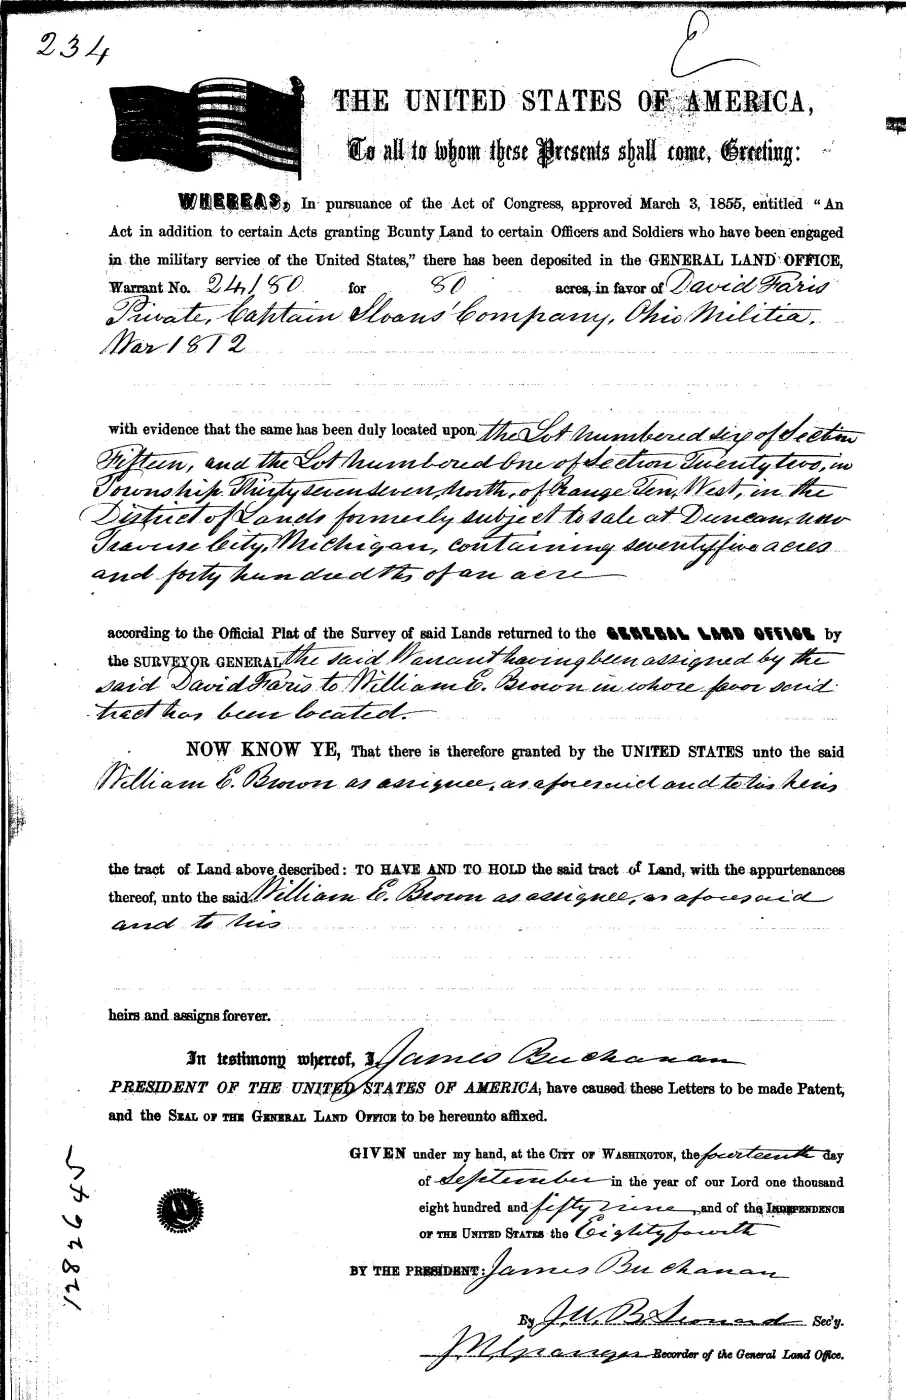 234
E
THE UNITED STATES OF AMERICA,
To all to whom these Presents shall come, Greeting:
WHEREAS, In pursuance of the Act of Congress, approved March 3, 1855, entitled "An
Act in addition to certain Acts granting Bounty Land to certain Officers and Soldiers who have been engaged
in the military service of the United States," there has been deposited in the GENERAL LAND OFFICE,
Warrant No. 24180 for 80 acres, in favor of David Faris
Private, Captain Sloans' Company, Ohio Militia,
War 1812
with evidence that the same has been duly located upon the Lot numbered six of Section
Fifteen, and the Lot numbered One of Section Twenty two, in
Township Thirty seven seven North, of Range Ten, West, in the
District of Lands formerly subject to sale at Duncan, now
Traverse City, Michigan, containing seventy five acres
and forty hundredths of an acre
according to the Official Plat of the Survey of said Lands returned to the GENERAL LAND OFFICE by
the SURVEYOR GENERAL the said Warrant having been assigned by the
said David Faris to William E. Brown in whose favor said
tract has been located.
NOW KNOW YE, That there is therefore granted by the UNITED STATES unto the said
William E. Brown as assignee, as aforesaid and to his heirs
the tract of Land above described: TO HAVE AND TO HOLD the said tract of Land, with the appurtenances
thereof, unto the said William E. Brown as assignee, as aforesaid
and to his
heirs and assigns forever.
In testimony whereof, I, James Buchanan
PRESIDENT OF THE UNITED STATES OF AMERICA, have caused these Letters to be made Patent,
and the SEAL OF THE GENERAL LAND OFFICE to be hereunto affixed.
GIVEN under my hand, at the CITY OF WASHINGTON, the fourteenth day
of September in the year of our Lord one thousand
eight hundred and fifty nine, and of the INDEPENDENCE
OF THE UNITED STATES the Eighty fourth
BY THE PRESIDENT: James Buchanan
By J. W. B. Leonard Sec'y.
J. N. Granger Recorder of the General Land Office.
128264 5